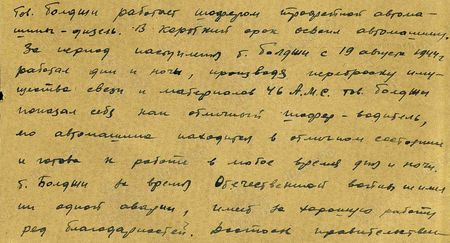 тов. Болджи работает шофером трофейной автома-
шины-дизель. В короткий срок освоил автомашину.
За период наступления т. Болджи с 19 августа 1944 г.
работал дни и ночи, производя переброску иму-
щества связи и материалов 46 А.М.С. тов. Болджи
показал себя как отличный шофер-водитель,
его автомашина находится в отличном состоянии
и готова к работе в любое время дня и ночи.
т. Болджи за время Отечественной войны не имел
ни одной аварии, имеет за хорошую работу
ряд благодарностей. Достоин правительствен